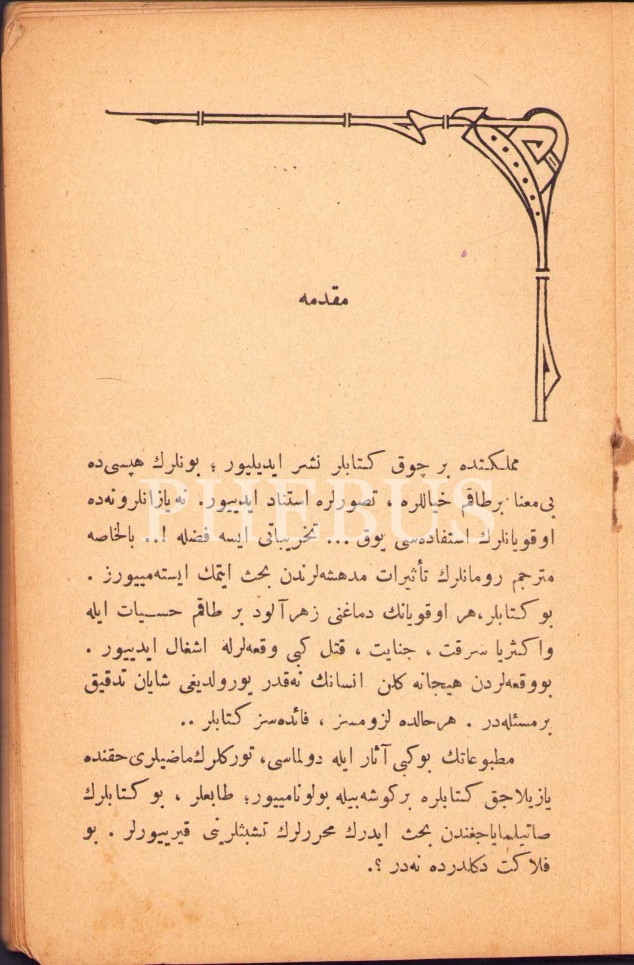 مقدمه
مملكتده بر چوق كتابلر نشر ايديليور ؛ بونلرك هپسی‌ده
بی‌معنا برطاقم خياللره ، تصورلره استناد ايدييور. نه‌يازانلرونه‌ده
اوقويانلرك استفاده‌سی يوق ... تخريباتی ايسه فضله !.. بالخاصه
مترجم رومانلرك تأثيرات مدهشه‌لرندن بحث ايتمك ايسته‌مييورز .
بو كتابلر،هر اوقويانك دماغنی زهرآلود بر طاقم حسيات ايله
واكثريا سرقت ، جنايت ، قتل كبی وقعه‌لرله اشغال ايدييور .
بووقعه‌لردن هيجانه كلن انسانك نه‌قدر يورولديغی شايان تدقيق
برمسئله‌در . هرحالده لزومسز ، فائده‌سز كتابلر ..
مطبوعاتك بوكبی آثار ايله دولماسی، توركلرك‌ماضيلری‌حقنده
يازيلاجق كتابلره بركوشه‌بيله بولونامييور؛ طابعلر ، بو كتابلرك
صاتيلماياجغندن بحث ايدرك محررلرك تشبثلرينی قيرييورلر . بو
فلاكت دكلدرده نه‌در ؟.
PHEBUS